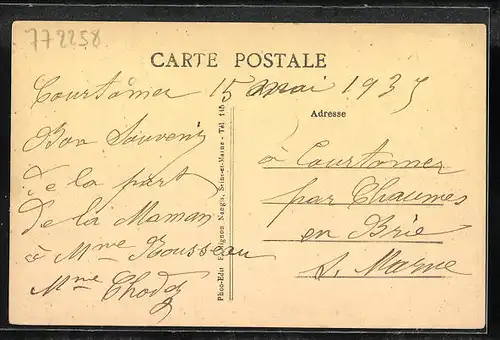 772258
CARTE POSTALE
Courtomer 15 mai 1935
Adresse
Bon Souvenir
de la part
de la Maman
à Mme Rousseau
Mme
à Courtomer
par Chaumes
en Brie
S. Marne
Phot-Edit Mignon Nangis, Seine-et-Marne - Tél. 115